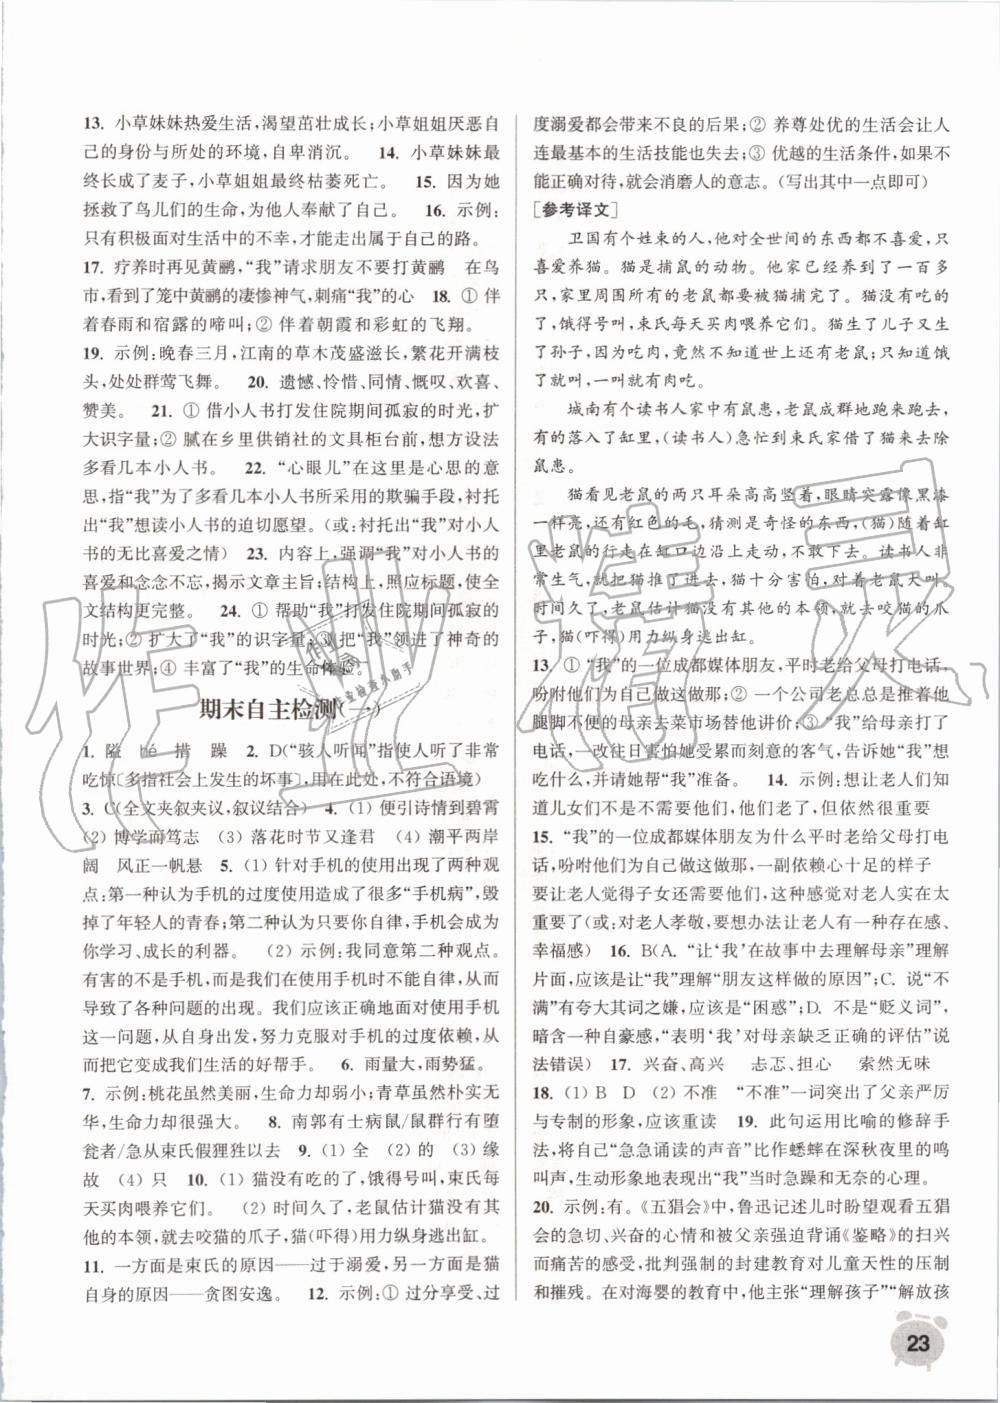 13. 小草妹妹热爱生活,渴望茁壮成长;小草姐姐厌恶自
己的身份与所处的环境,自卑消沉。 14. 小草妹妹最
终长成了麦子,小草姐姐最终枯萎死亡。 15. 因为她
拯救了鸟儿们的生命,为他人奉献了自己。 16. 示例:
只有积极面对生活中的不幸,才能走出属于自己的路。
17. 疗养时再见黄鹂,“我”请求朋友不要打黄鹂 在鸟
市,看到了笼中黄鹂的凄惨神气,刺痛“我”的心 18. ① 伴
着春雨和宿露的啼叫;② 伴着朝霞和彩虹的飞翔。
19. 示例:晚春三月,江南的草木茂盛滋长,繁花开满枝
头,处处群莺飞舞。 20. 遗憾、怜惜、同情、慨叹、欢喜、
赞美。 21. ① 借小人书打发住院期间孤寂的时光,扩
大识字量;② 腻在乡里供销社的文具柜台前,想方设法
多看几本小人书。 22. “心眼儿”在这里是心思的意
思,指“我”为了多看几本小人书所采用的欺骗手段,衬托
出“我”想读小人书的迫切愿望。(或:衬托出“我”对小人
书的无比喜爱之情) 23. 内容上,强调“我”对小人书的
喜爱和念念不忘,揭示文章主旨;结构上,照应标题,使全
文结构更完整。 24. ① 帮助“我”打发住院期间孤寂的
时光;② 扩大了“我”的识字量;③ 把“我”领进了神奇的
故事世界;④ 丰富了“我”的生命体验。
期末自主检测(一)
1. 隘 措 躁 2. D(“骇人听闻”指使人听了非常
吃惊〔多指社会上发生的坏事〕,用在此处,不符合语境)
3. C(全文夹叙夹议,叙议结合) 4. (1) 便引诗情到碧霄
(2) 博学而笃志 (3) 落花时节又逢君 (4) 潮平两岸
阔 风正一帆悬 5. (1) 针对手机的使用出现了两种观
点:第一种认为手机的过度使用造成了很多“手机病”,毁
掉了年轻人的青春;第二种认为只要你自律,手机会成为
你学习、成长的利器。 (2) 示例:我同意第二种观点。
有害的不是手机,而是我们在使用手机时不能自律,从而
导致了各种问题的出现。我们应该正确地面对使用手机
这一问题,从自身出发,努力克服对手机的过度依赖,从
而把它变成我们生活的好帮手。 6. 雨量大,雨势猛。
7. 示例:桃花虽然美丽,生命力却弱小;青草虽然朴实无
华,生命力却很强大。 8. 南郭有士病鼠/鼠群行有堕
瓮者/急从束氏假狸狌以去 9. (1) 全 (2) 的 (3) 缘
故 (4) 只 10. (1) 猫没有吃的了,饿得号叫,束氏每
天买肉喂养它们。 (2) 时间久了,老鼠估计猫没有其他
的本领,就去咬猫的爪子,猫(吓得)用力纵身逃出缸。
11. 一方面是束氏的原因——过于溺爱,一方面是猫
自身的原因——贪图安逸。 12. 示例:① 过分享受、过
度溺爱都会带来不良的后果;② 养尊处优的生活会让人
连最基本的生活技能也失去;③ 优越的生活条件,如果不
能正确对待,就会消磨人的意志。(写出其中一点即可)
[参考译文]
卫国有个姓束的人,他对全世间的东西都不喜爱,只
喜爱养猫。猫是捕鼠的动物。他家已经养到了一百多
只,家里周围所有的老鼠都被猫捕完了。猫没有什么吃
的了,饿得号叫,束氏每天买肉喂养它们。猫生了儿子又生
了孙子,因为吃肉,竟然不知道世上还有老鼠;只知道饿
了就叫,一叫就有肉吃。
城南有个读书人家中有鼠患,老鼠成群地跑来跑去,
有的落入了缸里,(读书人)急忙到束氏家借了猫来去除
鼠患。
猫看见老鼠的两只耳朵高高竖着,眼睛突露像黑漆
一样亮,还有红色的毛,猜测是奇怪的东西,(猫)随着缸
里老鼠的行走在缸口边上走动,不敢下去。读书人非
常生气,就把猫推了进去,猫十分害怕,对着老鼠大叫。
时间久了,老鼠估计猫没有其他的本领,就去咬猫的爪
子,猫(吓得)用力纵身逃出缸。
13. ① “我”的一位成都媒体朋友,平时老给父母打电话,
吩咐他们给自己做这样做那样;② 一个公司老总,总推着他
腿脚不便的母亲去菜市场他讲价;③ “我”给母亲打了
电话,一改往日害怕她受累而刻意的客气,告诉她“我”想
吃什么,并请她帮“我”准备。 14. 示例:想让老人们知
道儿女们不是不需要他们,他们老了,但依然很重要
15. “我”的一位成都媒体朋友为什么平时老给父母打电
话,吩咐他们给自己做这做那,一副依赖心十足的样子
要让老人觉得子女还需要他们,这种感觉对老人实在太
重要了(或:对老人孝敬,要想办法让老人有存在感、
幸福感) 16. B(A. “让‘我’在故事中去理解母亲”理解
片面,应该是让“我”理解“朋友这样做的原因”;C. 说“不
满”有夸大其词之嫌,应该是“困惑”;D. 不是“贬义词”,
暗含一种自豪感,“表明‘我’对母亲缺乏正确的评估”说
法错误) 17. 兴奋、高兴 忐忑、担心 索然无味
18. (1) B D (2) 不准 “不准”一词突出了父亲严厉
与专制的形象,应该重读 19. 此句运用比喻的修辞手
法,将自己“急急诵读的声音”比作蟋蟀在深秋夜里的鸣
叫声,生动形象地表现出“我”当时急躁和无奈的心理。
20. 示例:有。《五猖会》中,鲁迅记述儿时盼望观看五猖
会的急切、兴奋的心情和被父亲强迫背诵《鉴略》的扫兴
而痛苦的感受,批判强制的封建教育对儿童天性的压制
和摧残。在对海婴的教育中,他主张“理解孩子”“解放孩
23